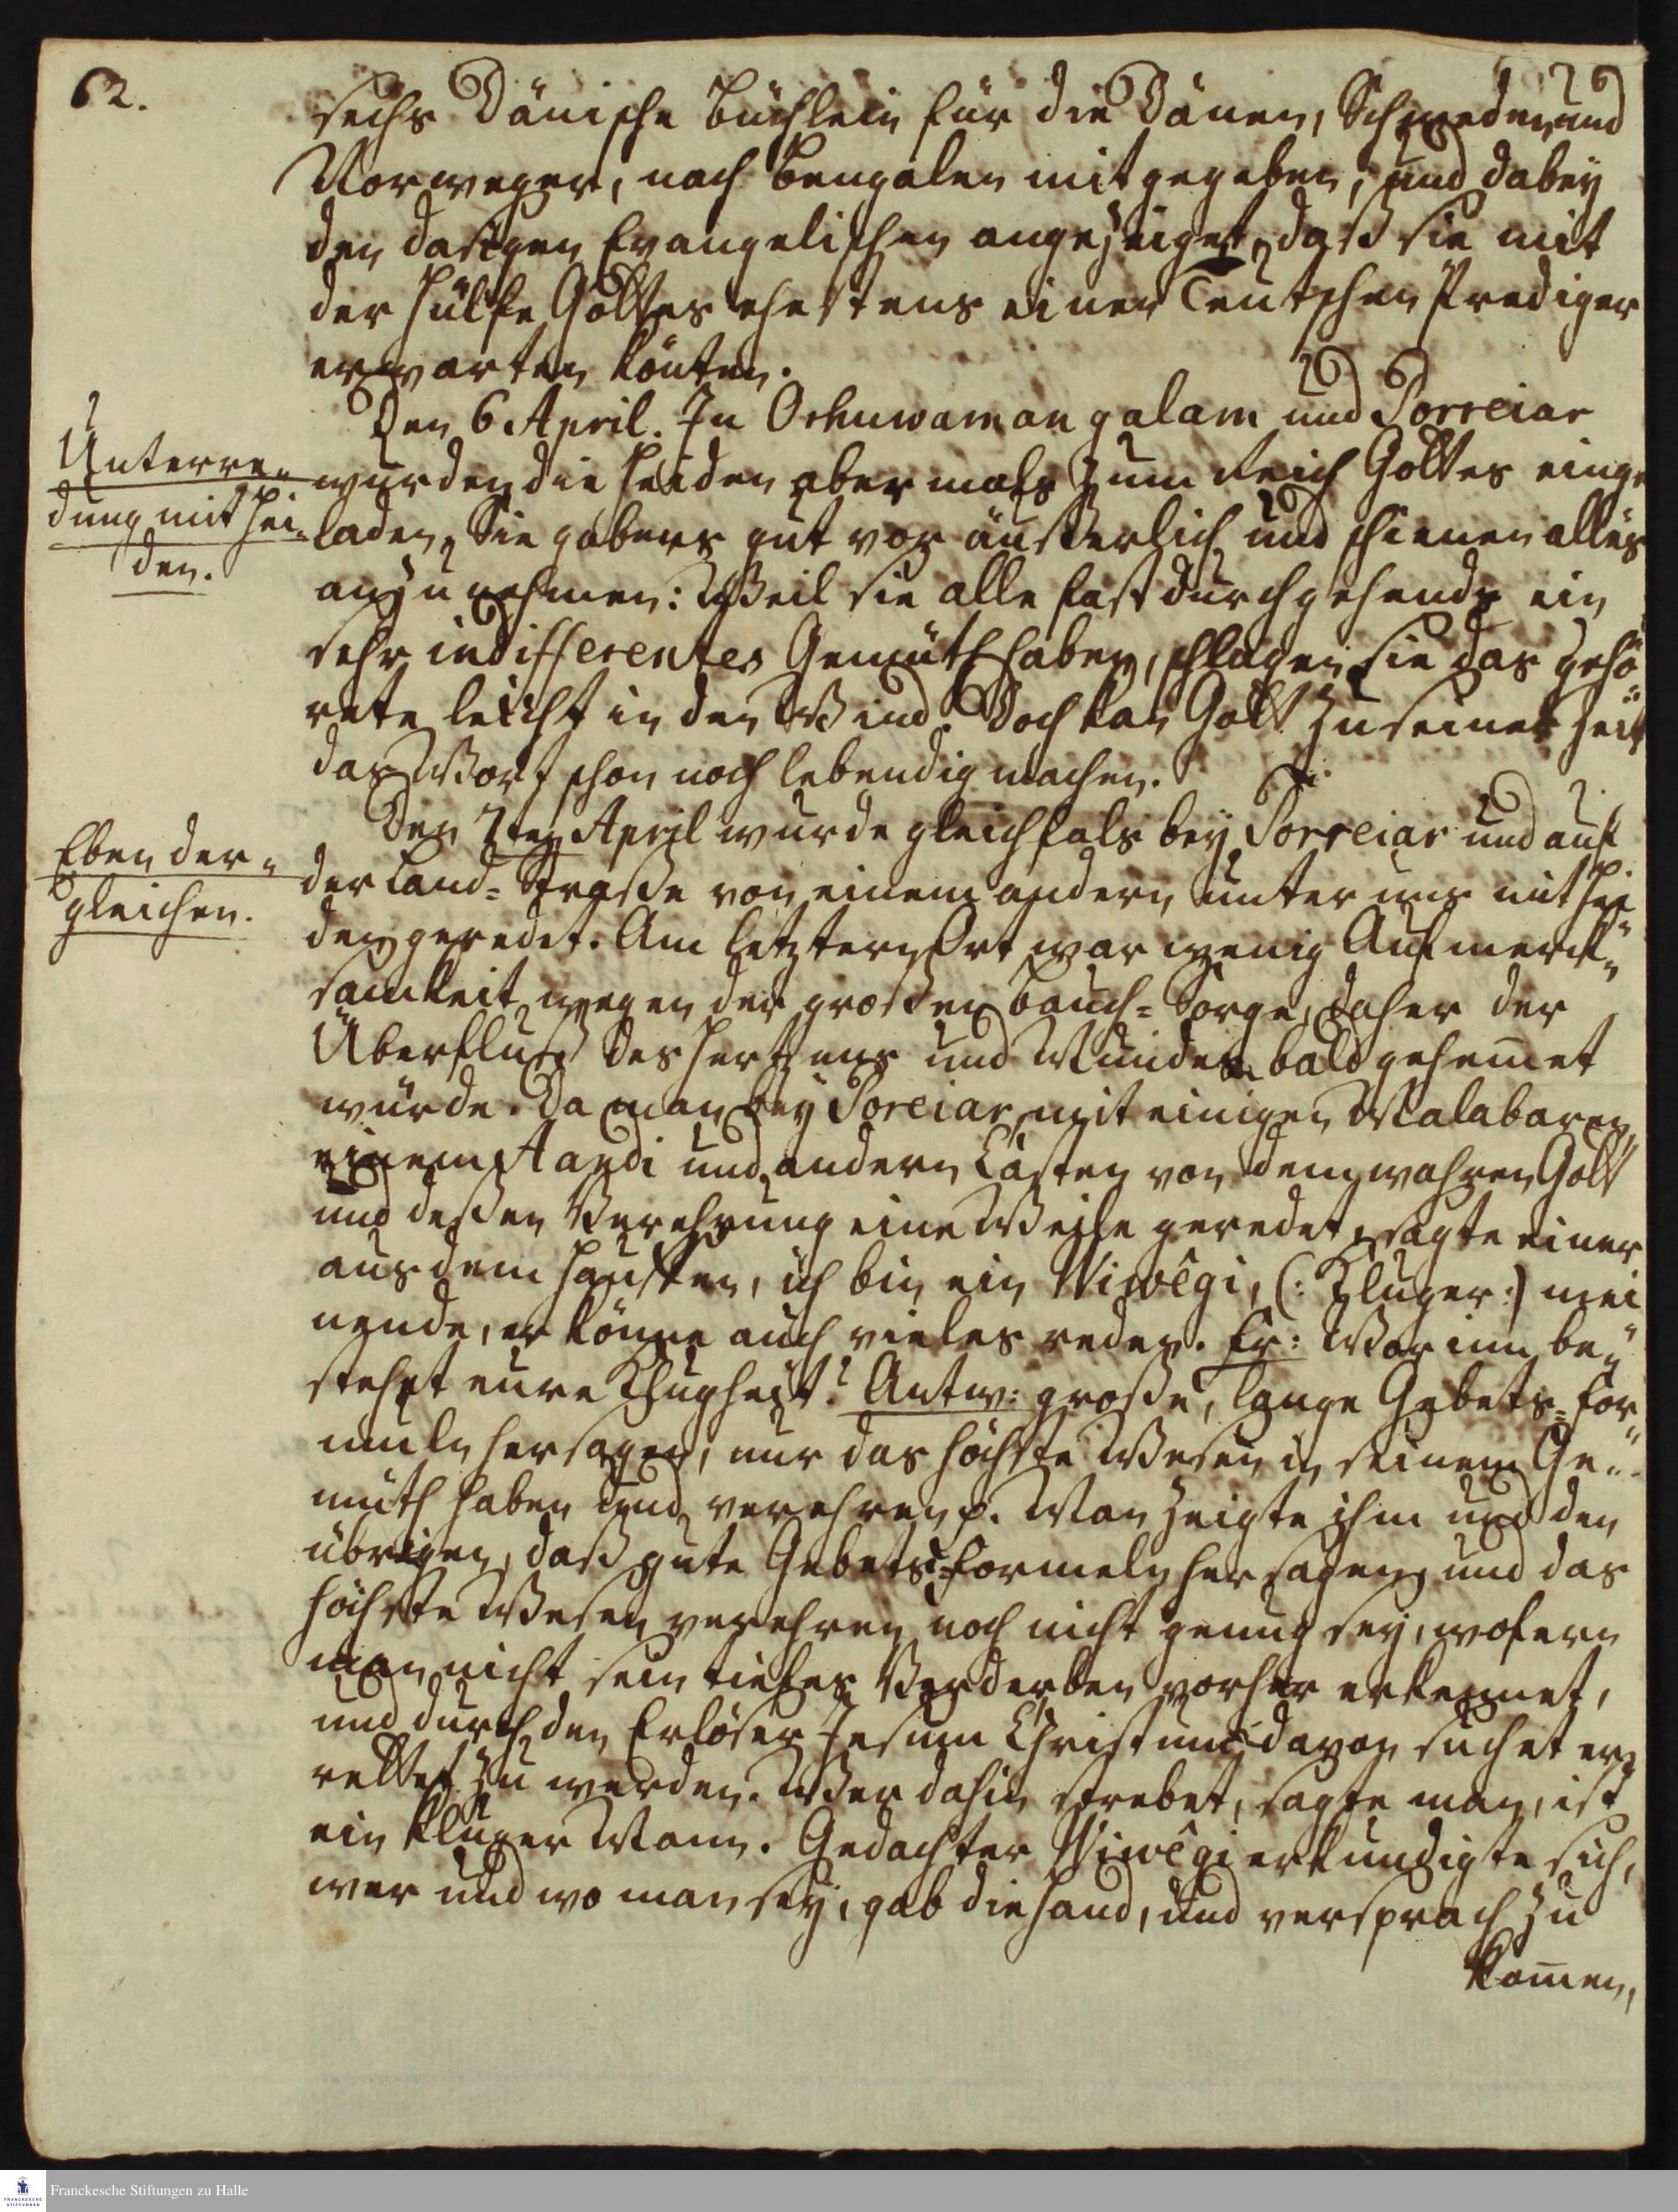 62.
sechs Dänische Büchlein für die Dänen, Schweden und
Norweger, nach Bengalen mitgegeben, und dabey
den dasigen Evangelischen angezeiget, daß sie mit
der Hülfe Gottes ehestens einen Teutschen Prediger
erwarten könten.
Unterre-
dung mit Hei-
den.
Den 6 April. In Orhuwamangalam und Porreiar
wurden die Heiden abermals zum Reich Gottes einge
laden, Sie gabens gut vor äusserlich und schienen alles
anzunehmen: Weil sie alle fast durchgehends ein
sehr indifferentes Gemüth haben, schlagen sie das gehö-
rete leicht in den Wind. Doch kan Gott zu seiner Zeit
das Wort schon noch lebendig machen.
Eben der-
gleichen.
Den 7ten April wurde gleichfals bey Porreiar und auf
der Land-Strasse von einem andern unter uns mit Hei-
den geredet. Am letztern Ort war wenig Aufmerck-
samkeit wegen der grossen Bauch-Sorge, daher der
Überfluß des Hertzens und Mundes bald gehemet
würde. Da man bey Poreiar mit einigen Malabaren
einem Aandi und andern Casten von dem wahren Gott
und dessen Verehrung eine Weile geredet, sagte einer
aus dem Hauffen, ich bin ein Wiwêgi, (: Kluger :) mei-
nende, er könne auch vieles reden. Er: Worinn be-
stehet eure Klugheit? Antw: grosse, lange Gebets-For-
muln hersagen, nur das höchste Wesen in seinem Ge-
müth haben und verehren p. Man zeigte ihm und den
übrigen, daß gute Gebets-Formeln hersagen und das
höchste Wesen verehren noch nicht genug sey, wofern
man nicht sein tiefes Verderben vorher erkennet,
und durch den Erlöser Jesum Christum davon suchet er-
rettet zu werden. Wer dahin strebet, sagte man, ist
ein kluger Mann. Gedachter Wiwêgi erkundigte sich,
wer und wo man sey, gab die Hand, und versprach zu
komen,
Franckesche Stiftungen zu Halle